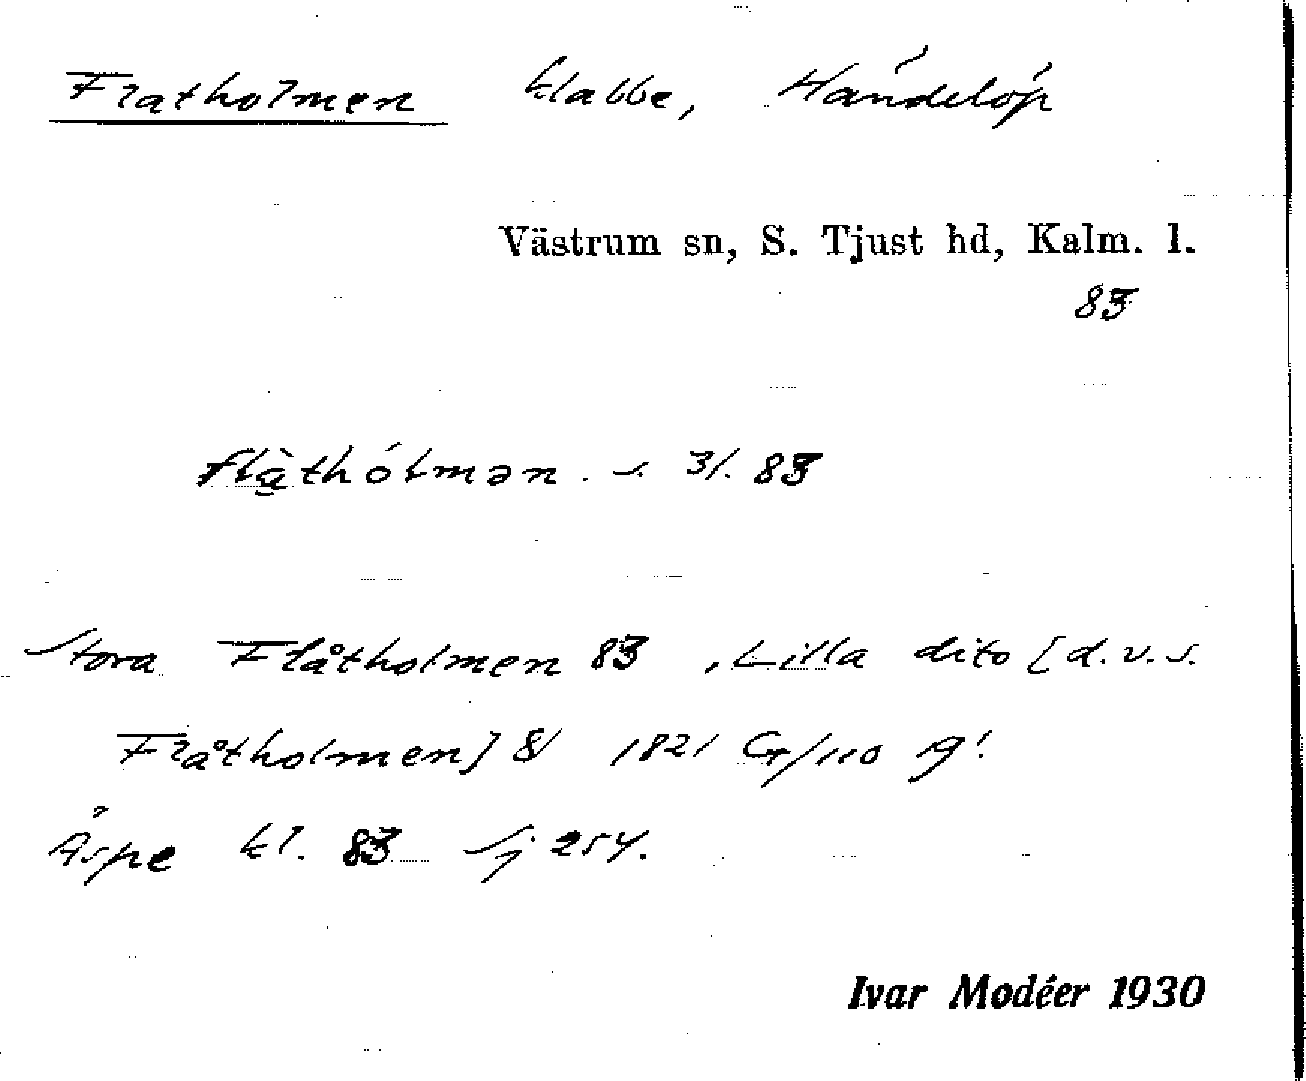 Flatholmen klabbe, Händelöp
Västrum sn, S. Tjust hd, Kalm. l.
83
flàthólmən . s. 3/. 83
Stora Flåtholmen 83 , Lilla dito [d.v.s.
Flåtholmen] 81 1821 Cr/110 19!
Äspe kl. 83 Sj 254.
Ivar Modéer 1930